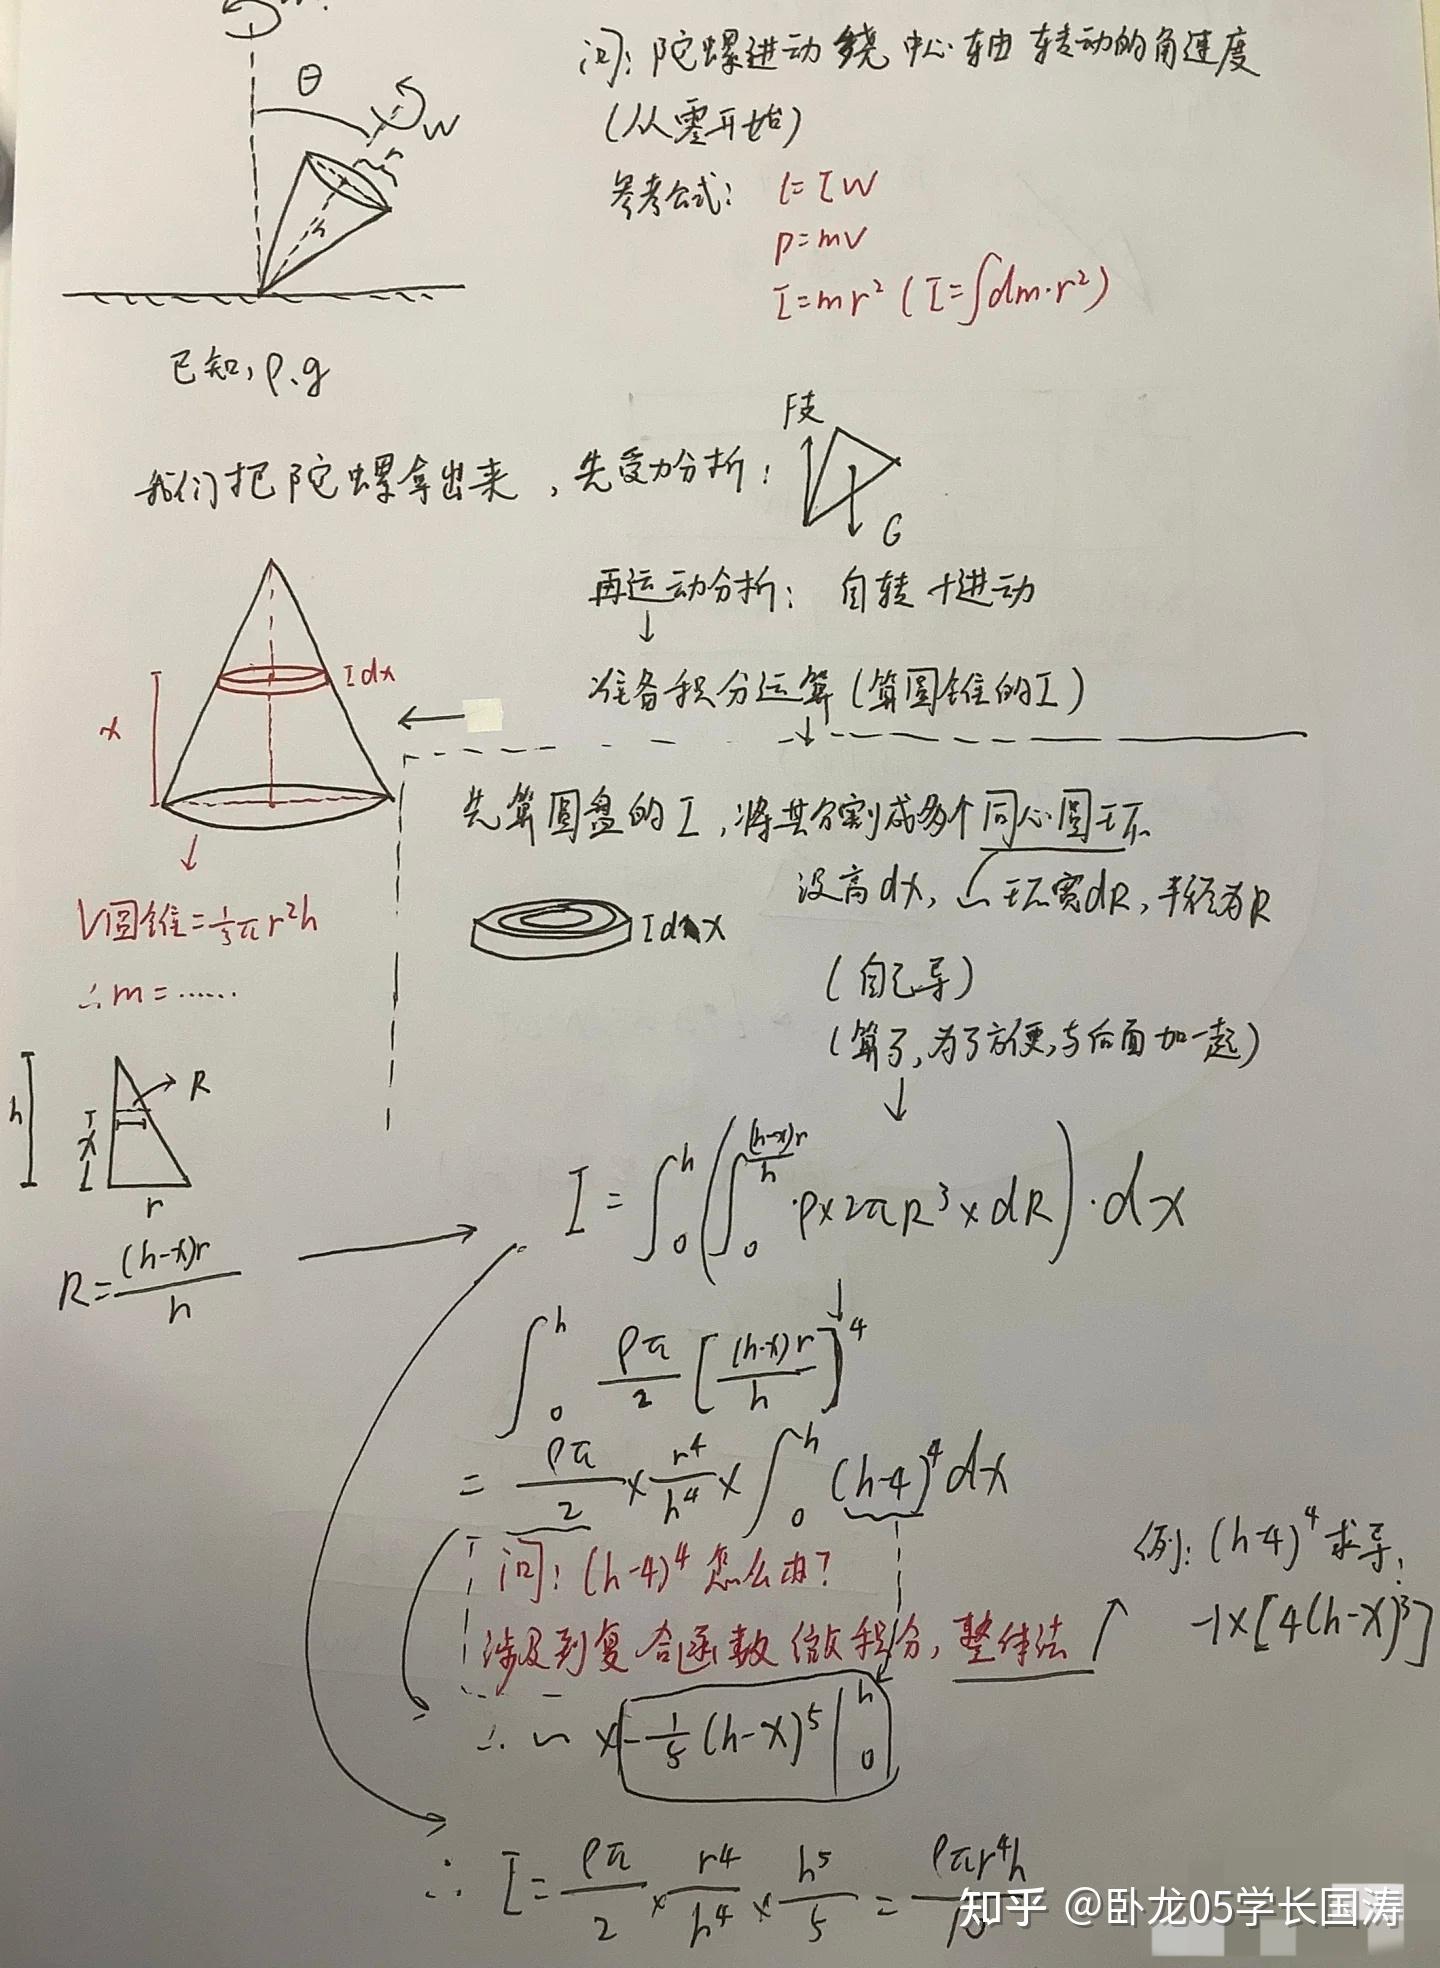 θ
w
r
h
问：陀螺进动绕中心轴转动的角速度
(从零开始)
参考公式：l=Iw
p=mv
I=mr²(I=∫dm·r²)
已知，ρ、g
我们把陀螺拿出来，先受力分析：
F支
G
再运动分析：自转+进动
准备积分运算(算圆锥的I)
x
Idx
V圆锥=⅓πr²h
∴m=……
先算圆盘的I，将其分割成多个同心圆环
设高dx，环宽dR，半径为R
Idx
(自己导)
(算了，为了方便，与后面加一起)
h
x
R
r
R=(h-x)r/h
I=∫₀ʰ(∫₀^((h-x)r/h)·ρ×2πR³×dR)·dx
∫₀ʰ ρπ/2[(h-x)r/h]⁴
=ρπ/2×r⁴/h⁴×∫₀ʰ(h-4)⁴dx
问：(h-4)⁴怎么办？
涉及到复合函数微积分，整体法
例：(h-4)⁴求导：
-1×[4(h-x)³]
∴~×-⅕(h-x)⁵|₀ʰ
∴I=ρπ/2×r⁴/h⁴×h⁵/5=ρπr⁴h/10
知乎 @卧龙05学长国涛